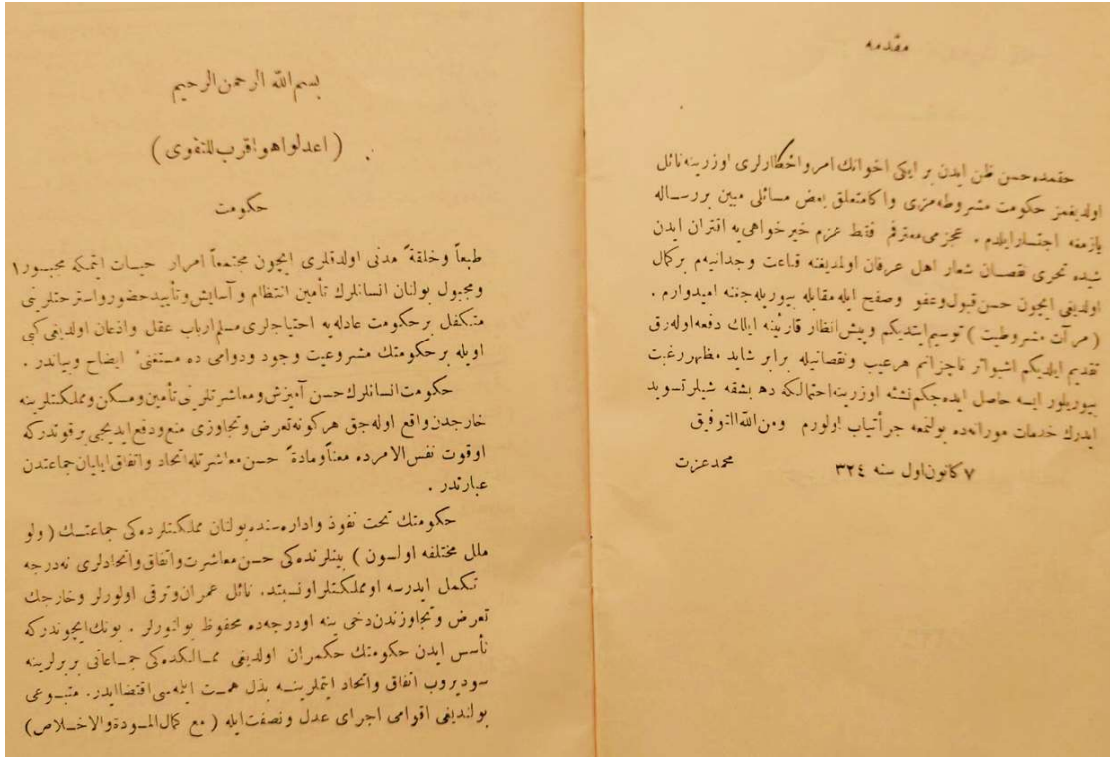 مقدمه
حقمده حسن ظن ایدن بر ایکی اخوانك امر واخطارلری اوزرینه نائل
اولدیغمز حکومت مشروطه مزی واکا متعلق بعض مسائلی مبین بر رساله
یازمغه اجتسار ایلدم . عجزمی معترفم فقط عزم خیرخواهی یه اقتران ایدن
شیده تحری نقصان شعار اهل عرفان اولمدیغنه قناعت وجدانیه م برکمال
اولدیغی ایچون حسن قبول وعفو وصفح ایله مقابله بیوریله جغنه امیدوارم .
( مرآت مشروطیت ) توسیم ایتدیکم وپیش انظار قارئینه ایلك دفعه اوله رق
تقدیم ایلدیکم اشبو اثر ناچزانم هرعیب ونقصانیله برابر شاید مظهر رغبت
بیوریلور ایسه حاصل ایده جکم نشئه اوزرینه احتمالکه دها بشقه شیلر تسوید
ایدرك خدمات مورانه ده بولنمغه جرأتیاب اولورم ومن الله التوفیق
٧ کانون اول سنه ٣٢٤ محمد عزت
بسم الله الرحمن الرحیم
( اعدلوا هو اقرب للتقوی )
حکومت
طبعاً وخلقةً مدنی اولدقلری ایچون مجتمعاً امرار حیات ایتمکه مجبور
ومجبول بولنان انسانلرك تأمین انتظام و آسایش وتأیید حضور واسترحتلرینی
متکفل بر حکومت عادله یه احتیاجلری مسلم ارباب عقل واذعان اولدیغی کبی
اویله بر حکومتك مشروعیت وجود ودوامی ده مستغنیٔ ایضاح وبیاندر .
حکومت انسانلرك حسن آمیزش ومعاشرتلرینی تأمین ومسکن ومملکتلرینه
خارجدن واقع اوله جق هرکونه تعرض وتجاوزی منع ودفع ایدیجی برقوتدرکه
اوقوت نفس الامرده معناً ومادةً حسن معاشرتله اتحاد واتفاق ایلیان جماعتدن
عبارتدر .
حکومتك تحت نفوذ واداره سنده بولنان مملکتلرده کی جماعتك ( ولو
ملل مختلفه اولسون ) بینلرنده کی حسن معاشرت واتفاق واتحادلری نه درجه
تکمل ایدرسه اومملکتلر اونسبتده نائل عمران وترقی اولورلر وخارجك
تعرض وتجاوزندن دخی ینه اودرجه ده محفوظ بولنورلر . بونك ایچوندرکه
تأسس ایدن حکومتك حکمران اولدیغی ممالکده کی جماعاتی بربرلرینه
سودیروب اتفاق واتحاد ایتملرینه بذل همت ایله می اقتضا ایدر . متبوعی
بولندیغی اقوامی اجرای عدل ونصفت ایله ( مع کمال المودة والاخلاص )